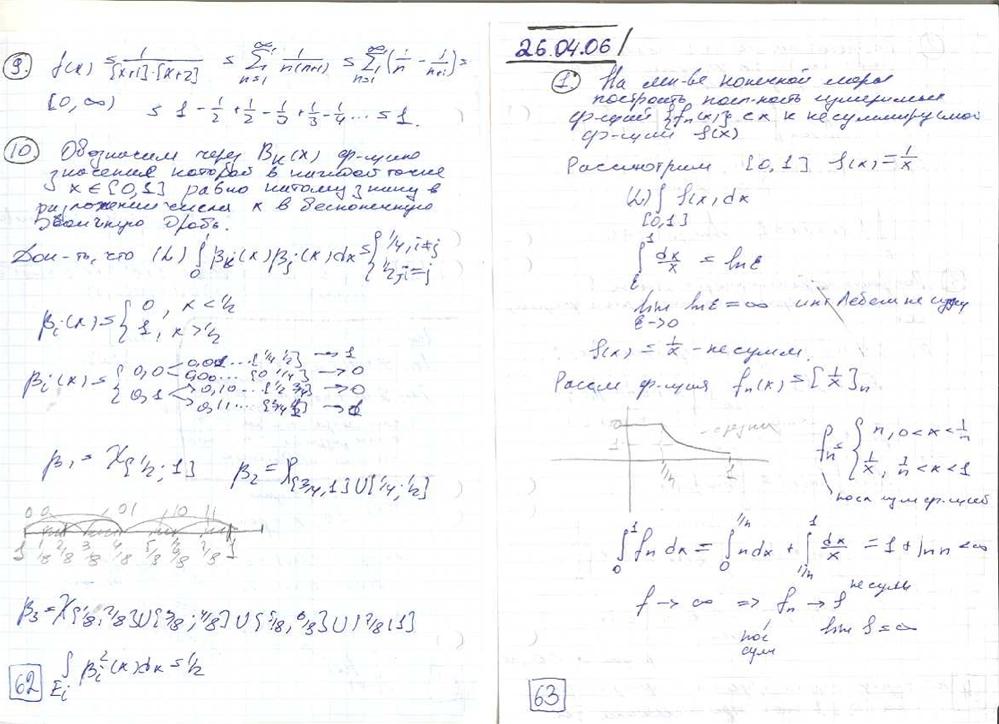 9. f(x) ≤ 1/([x+1]·[x+2]) ≤ ∑_{n=1}^{∞} 1/(n(n+1)) ≤ ∑_{n=1}^{∞} (1/n - 1/(n+1)) =
[0, ∞) ≤ 1 - 1/2 + 1/2 - 1/3 + 1/3 - 1/4 ... ≤ 1.
10. Обозначим через Bk(x) ф-цию
значения которой в каждой точке
x ∈ [0,1] равно катому знаку в
разложении числа x в бесконечную
двоичную дробь.
Док-ть, что (L) ∫_0^1 βi(x) βj(x) dx = { 1/4, i≠j
1/2, i=j
βi(x) = { 0, x < 1/2
1, x > 1/2
0,00... [0 1/4] → 0
0,10... [1/2 3/4] → 0
0,11...
β1 = χ[1/2; 1] β2 = χ[3/4, 1] ∪ [1/4; 1/2]
00 01 10 11
1/8 2/8 3/8 4/8 5/8 6/8 7/8 1
β3 = χ[1/8, 2/8] ∪ [3/8; 4/8] ∪ [5/8, 6/8] ∪ [7/8, 1]
∫_{Ei} βi²(x) dx = 1/2
62
26.04.06
1. На мн-ве конечной меры
построить посл-ность измеримых
ф-ций {fn(x)} сх к несуммируемой
ф-ции f(x)
Рассмотрим [0,1] f(x) = 1/x
(L) ∫_{[0,1]} f(x) dx
∫_ε^1 dx/x = ln ε
lim_{ε→0} ln ε = ∞ инт Лебега не
f(x) = 1/x - не сумм.
Рассм ф-ция fn(x) = [1/x]n
1/n 1
fn = { n, 0 < x < 1/n
1/x, 1/n < x < 1
∫_0^1 fn dx = ∫_0^{1/n} n dx + ∫_{1/n}^1 dx/x = 1 + ln n < ∞
f → ∞ ⇒ fn → f не сумм
lim f = ∞
63